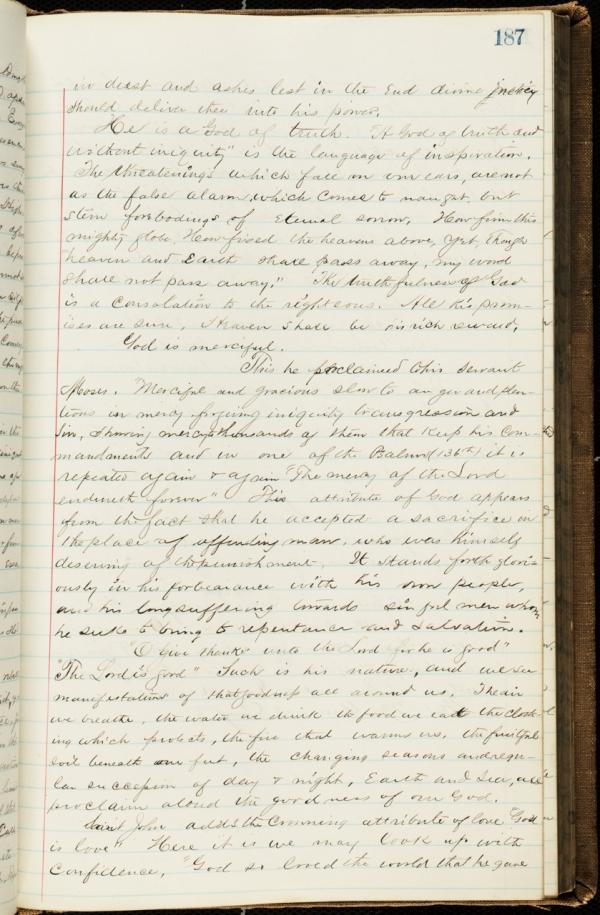 187
in dust and ashes lest in the End divine justice
should deliver thee into his power.
He is a God of truth. "A God of truth and
without iniquity" is the language of inspiration.
The threatenings which fall on our ears, are not
as the false alarm, which comes to naught, but
stern forebodings of Eternal sorrow. How firm this
mighty globe, How fixed the heavens above, yet though
heaven and Earth shall pass away, my word
shall not pass away." The truthfulness of God
is a consolation to the righteous. All his prom-
ises are sure. Heaven shall be his rich reward.
God is merciful.
This he proclaimed to his servant
Moses. "Merciful and gracious slow to anger and plen-
tious in mercy forgiving iniquity transgression and
sin, showing mercy to thousands of them that keep his com-
mandments and in one of the Psalms (136th) it is
repeated again & again "The mercy of the Lord
endureth forever" This attribute of God appears
from the fact that he accepted a sacrifice in
the place of offending man, who was himself
deserving of the punishment. It stands forth glori-
ously in his forbearance with his own people,
and his longsuffering towards sinful men whom
he seeks to bring to repentance and salvation.
"O give thanks unto the Lord for he is good"
"The Lord is good" Such is his nature, and we see
manifestations of that goodness all around us. The air
we breathe, the water we drink the food we eat the cloth-
ing which protects, the fire that warms us, the fruitful
soil beneath our feet, the changing seasons and regu-
lar succession of day & night, Earth and Sea, all
proclaim aloud the goodness of our God.
Saint John adds the crowning attribute of love "God
is love" Here it is we may look up with
confidence, "God so loved the world that he gave